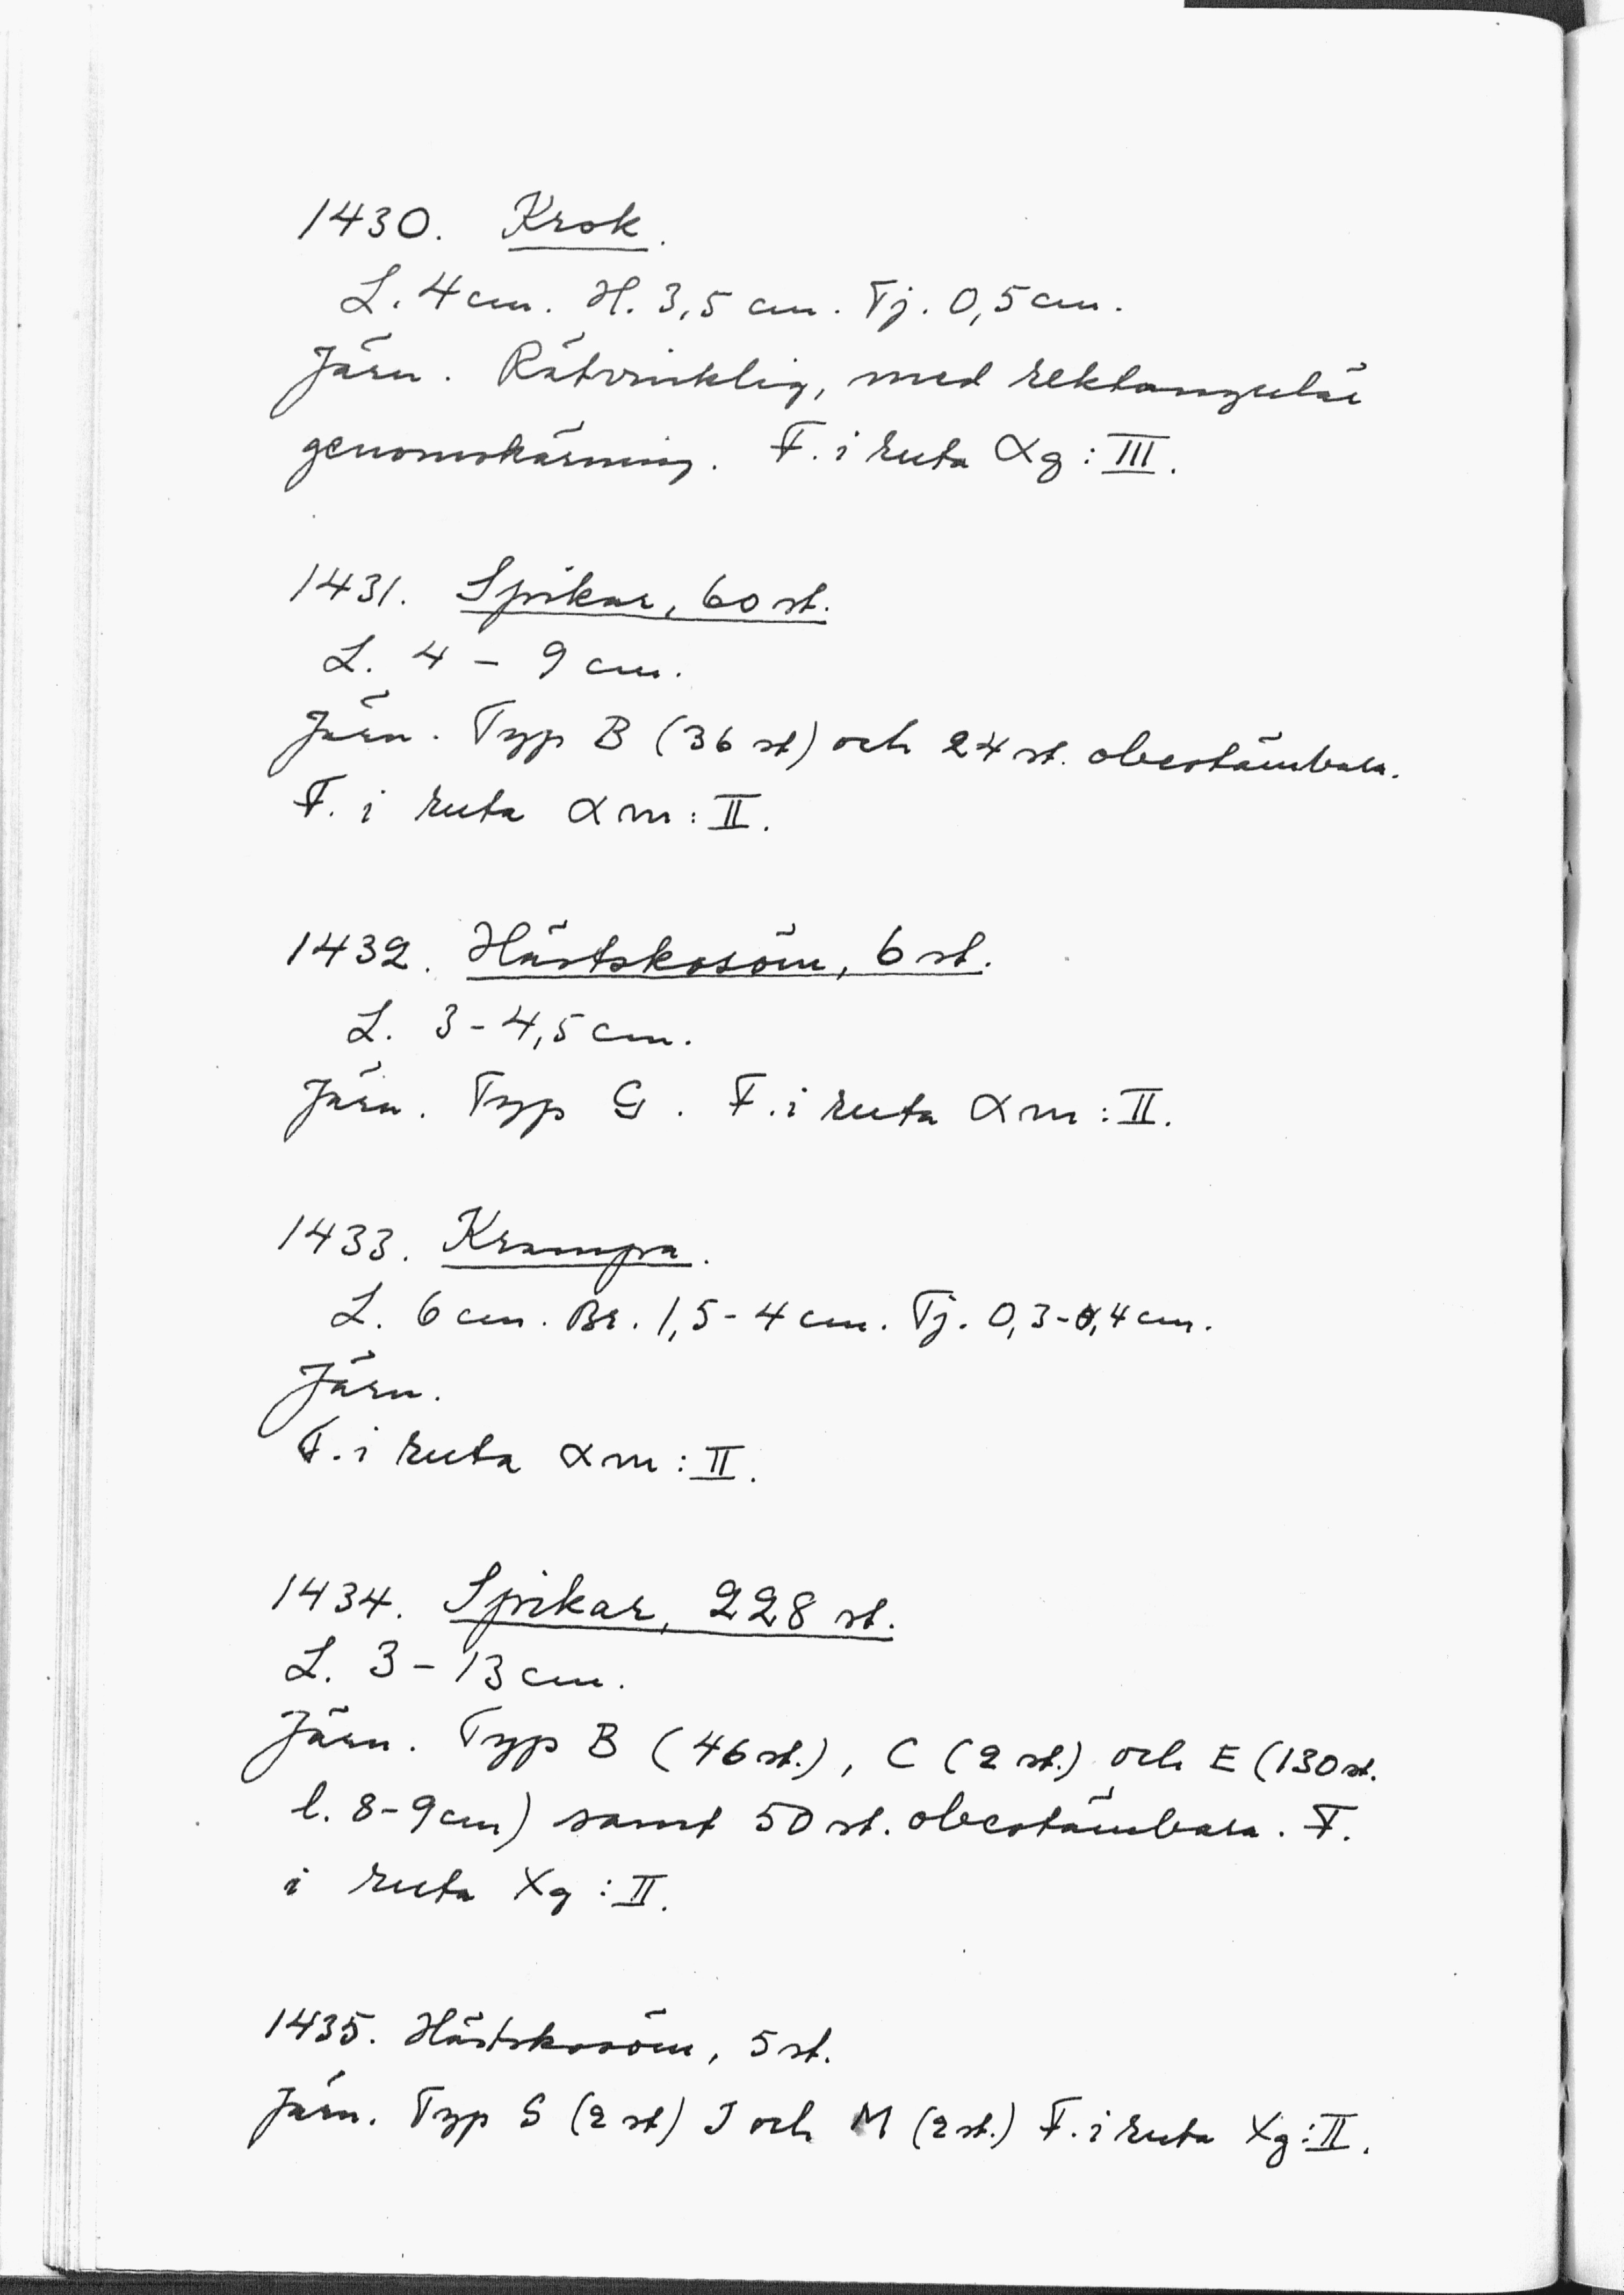 1430. Krok.
L. 4 cm. H. 3,5 cm. Tj. 0,5 cm.
Järn. Rätvinklig, med rektangulär
genomskärning. F. i ruta αg : III.
1431. Spikar, 60 st.
L. 4 – 9 cm.
Järn. Typ B (36 st) och 24 st. obestämbara.
F. i ruta αm : II.
1432. Hästskosöm, 6 st.
L. 3 - 4,5 cm.
Järn. Typ G. F. i ruta αm : II.
1433. Krampa.
L. 6 cm. Br. 1,5 - 4 cm. Tj. 0,3 - 0,4 cm.
Järn.
F. i ruta αm : II.
1434. Spikar, 228 st.
L. 3 – 13 cm.
Järn. Typ B (46 st.), C (2 st.) och E (130 st.
l. 8 - 9 cm) samt 50 st. obestämbara. F.
i ruta Xg : II.
1435. Hästskosöm, 5 st.
Järn. Typ S (2 st) J och M (2 st.) F. i ruta Xg : II.